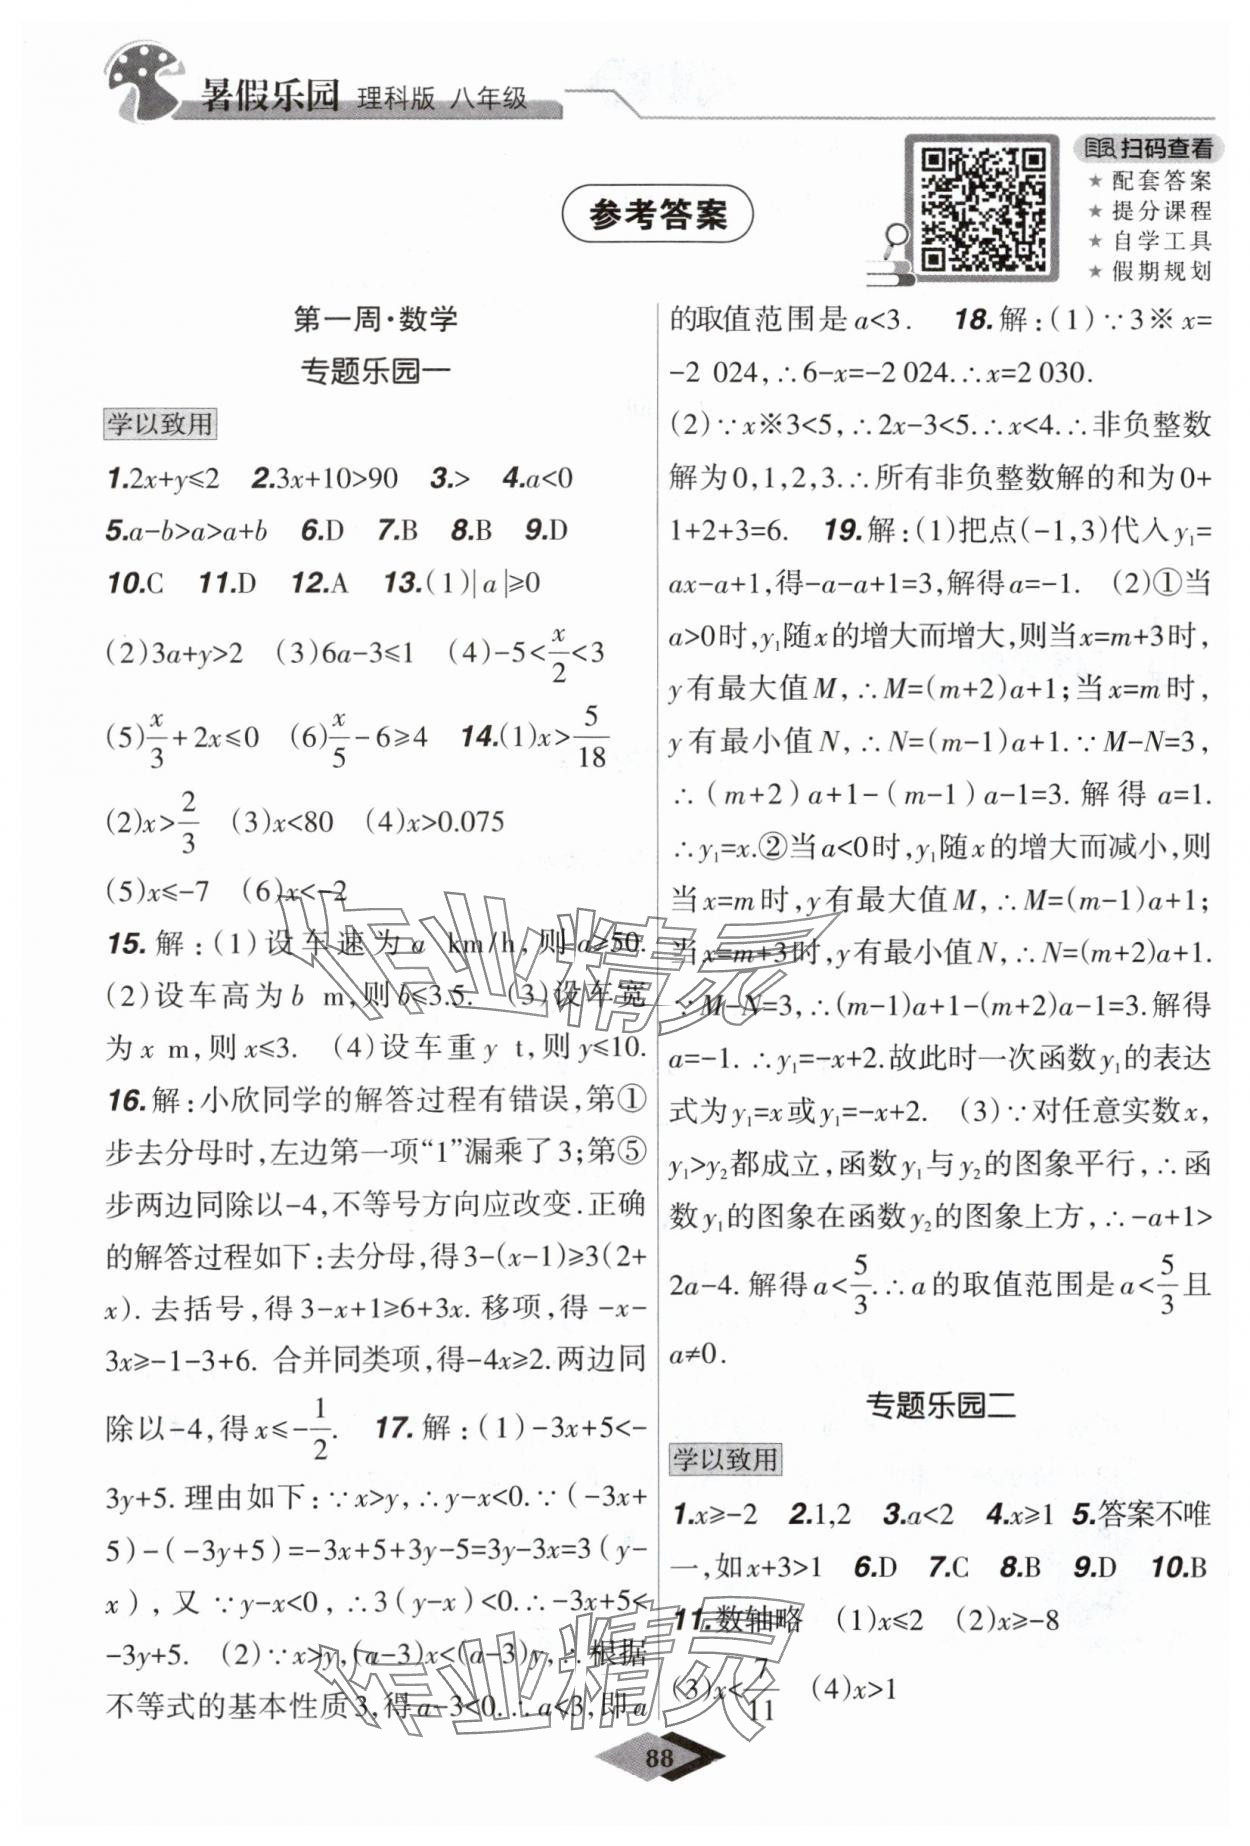 暑假乐园 理科版 八年级
扫码查看
★ 配套答案
★ 提分课程
★ 自学工具
★ 假期规划
参考答案
第一周·数学
专题乐园一
学以致用
1.2x+y≤2 2.3x+10>90 3.> 4.a<0
5.a-b>a>a+b 6.D 7.B 8.B 9.D
10.C 11.D 12.A 13.(1)|a|≥0
(2)3a+y>2 (3)6a-3≤1 (4)-5<x/2<3
(5)x/3+2x≤0 (6)x/5-6≥4 14.(1)x>5/18
(2)x>2/3 (3)x<80 (4)x>0.075
(5)x≤-7 (6)x<-2
15.解:(1)设车速为a km/h,则a≥50.
(2)设车高为b m,则b≤3.5. (3)设车宽
为x m,则x≤3. (4)设车重y t,则y≤10.
16.解:小欣同学的解答过程有错误,第①
步去分母时,左边第一项“1”漏乘了3;第⑤
步两边同除以-4,不等号方向应改变.正确
的解答过程如下:去分母,得3-(x-1)≥3(2+
x).去括号,得3-x+1≥6+3x.移项,得-x-
3x≥-1-3+6.合并同类项,得-4x≥2.两边同
除以-4,得x≤-1/2. 17.解:(1)-3x+5<-
3y+5.理由如下:∵x>y,∴y-x<0.∵(-3x+
5)-(-3y+5)=-3x+5+3y-5=3y-3x=3(y-
x),又∵y-x<0,∴3(y-x)<0.∴-3x+5<
-3y+5. (2)∵x>y,(a-3)x<(a-3)y,∴根据
不等式的基本性质3,得a-3<0.∴a<3,即a
的取值范围是a<3. 18.解:(1)∵3※x=
-2 024,∴6-x=-2 024.∴x=2 030.
(2)∵x※3<5,∴2x-3<5.∴x<4.∴非负整数
解为0,1,2,3.∴所有非负整数解的和为0+
1+2+3=6. 19.解:(1)把点(-1,3)代入y₁=
ax-a+1,得-a-a+1=3,解得a=-1. (2)①当
a>0时,y₁随x的增大而增大,则当x=m+3时,
y有最大值M,∴M=(m+2)a+1;当x=m时,
y有最小值N,∴N=(m-1)a+1.∵M-N=3,
∴(m+2)a+1-(m-1)a-1=3.解得a=1.
∴y₁=x.②当a<0时,y₁随x的增大而减小,则
当x=m时,y有最大值M,∴M=(m-1)a+1;
当x=m+3时,y有最小值N,∴N=(m+2)a+1.
∵M-N=3,∴(m-1)a+1-(m+2)a-1=3.解得
a=-1.∴y₁=-x+2.故此时一次函数y₁的表达
式为y₁=x或y₁=-x+2. (3)∵对任意实数x,
y₁>y₂都成立,函数y₁与y₂的图象平行,∴函
数y₁的图象在函数y₂的图象上方,∴-a+1>
2a-4.解得a<5/3.∴a的取值范围是a<5/3且
a≠0.
专题乐园二
学以致用
1.x≥-2 2.1,2 3.a<2 4.x≥1 5.答案不唯
一,如x+3>1 6.D 7.C 8.B 9.D 10.B
11.数轴略 (1)x≤2 (2)x≥-8
(3)x<7/11 (4)x>1
作业精灵
作业精灵
88